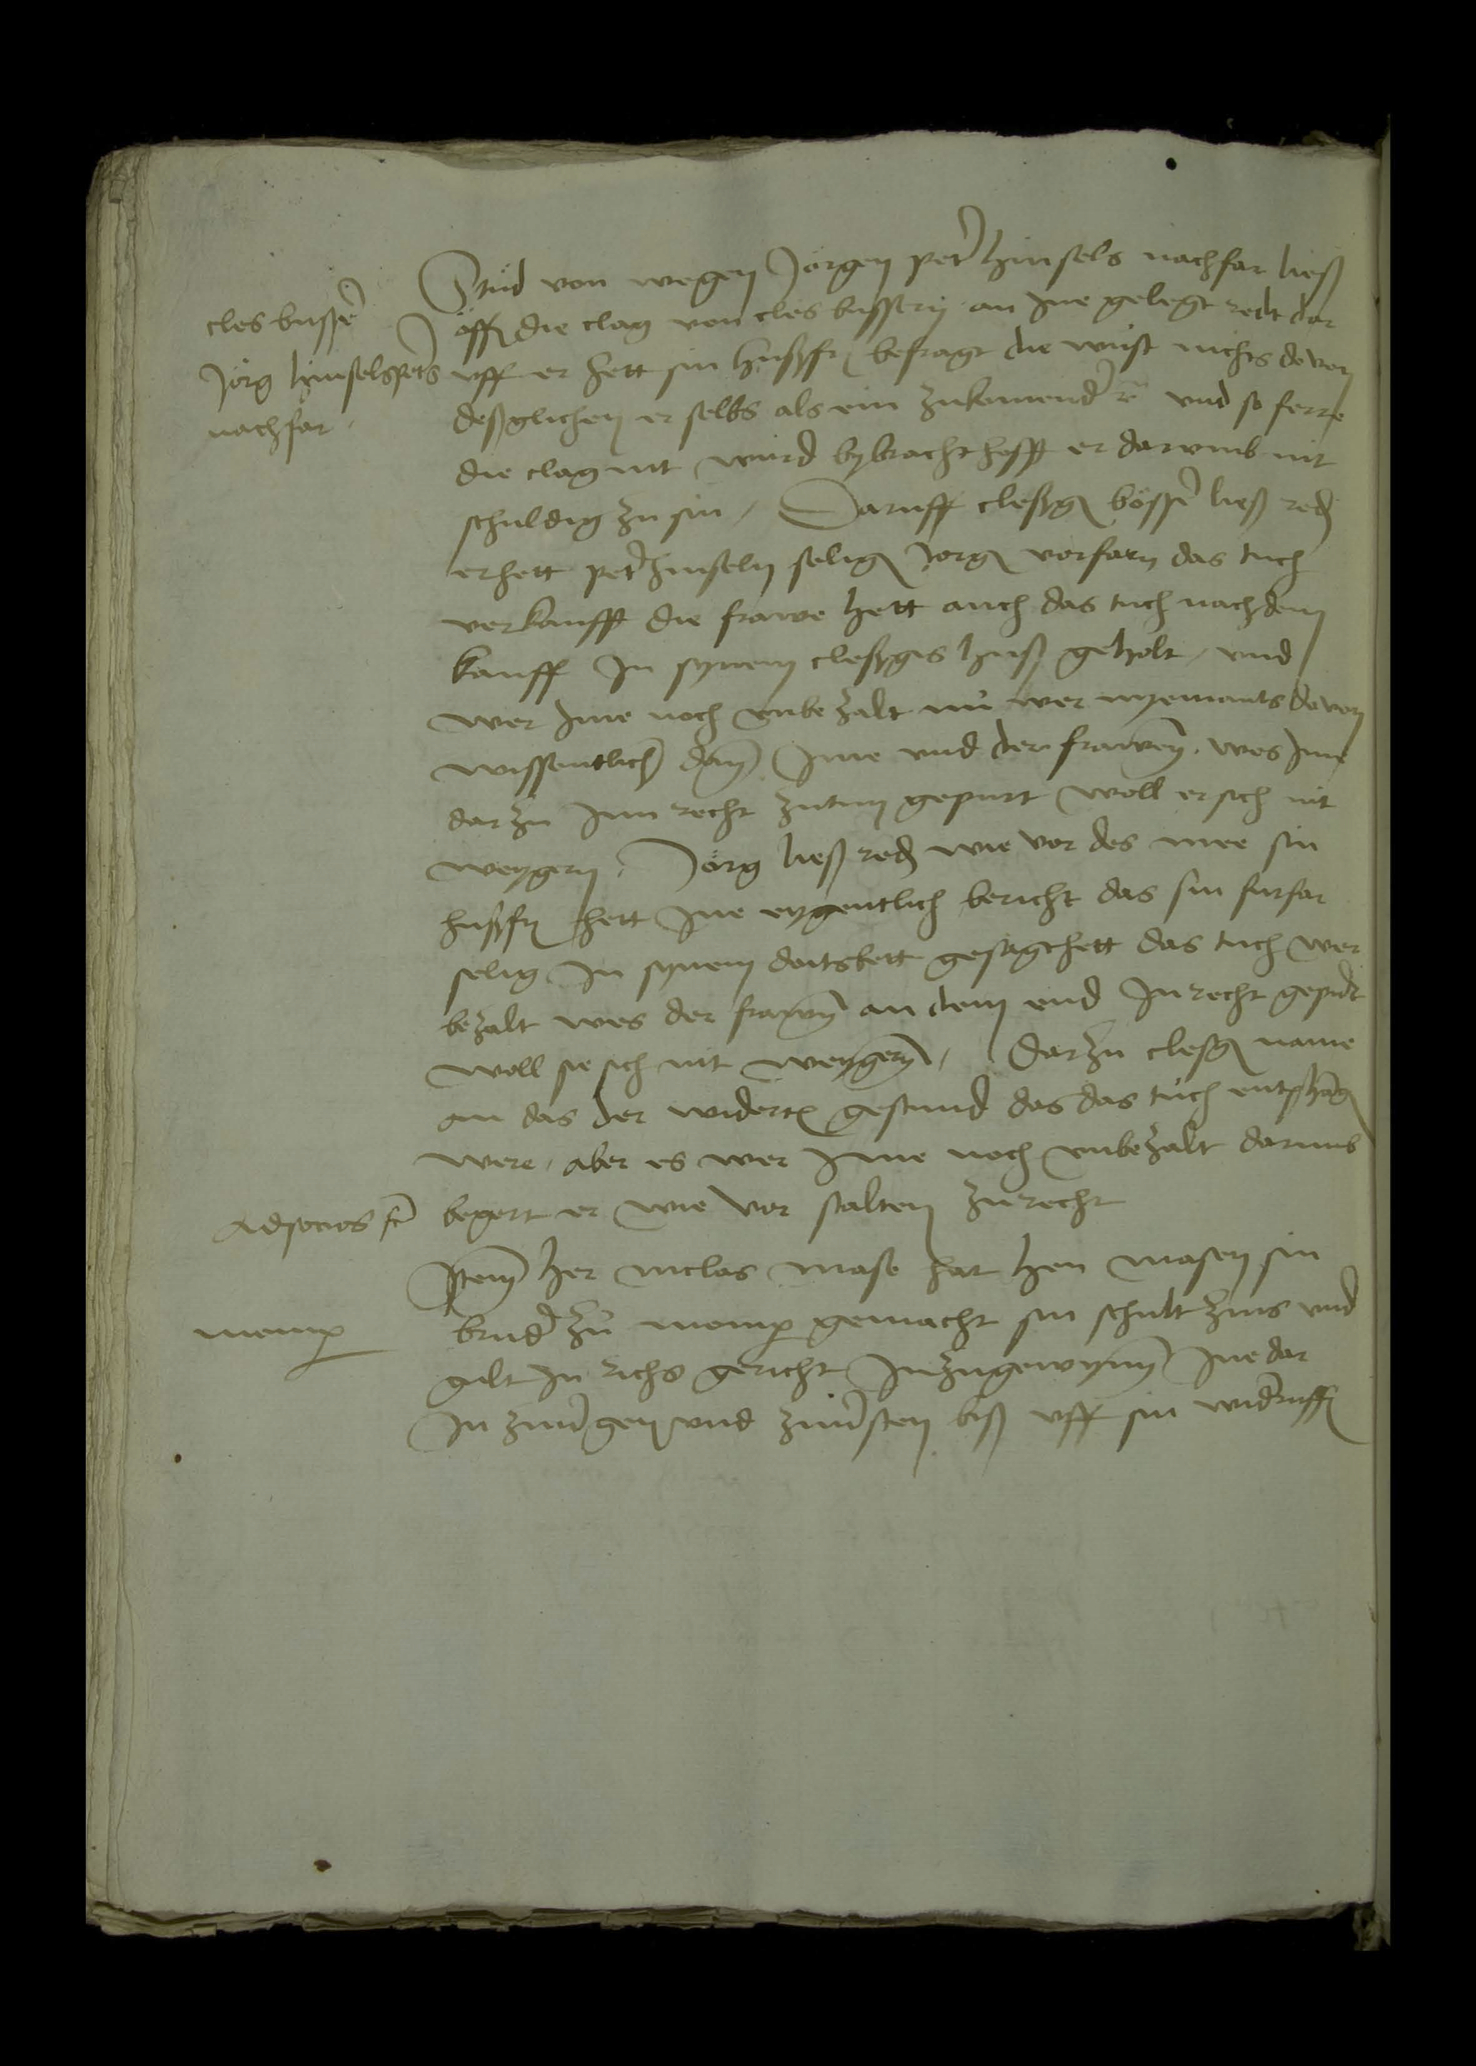 cles busser
Jörg hinselspeters
nachfar
Stud von wegen Jörgen peter hinsels nachfar ließ
uff die clag von cles bussern an ine gelegt redt dar
uff er hett sin husfr befragt die wust nichts davon
deßglichen er selbs als ein zukomender und so ferre
die clag nit wurd bybracht hofft er darumb nit
schuldig zu sin / Daruff clesgen bösser ließ reden
er hett peter hinseln seligen Jorgen vorfarn das tuch
verkaufft die frawe hett auch das tuch nach dem
kauff In synem clesgis huß geholt / und
wer Ime noch unbezalt nu wer nyemants davon
wissentlich dann Ime und der frawen wes Ime
darzu Inn recht zutun gepurt woll er sich nit
weygern / Jörg ließ reden wie vor des mee sin
husfr hett Ine eygentlich bericht das sin furfar
selig In synem doitsbett gesagt hett das tuch wer
bezalt wes der frawen an dem end In recht gepurt
woll sie sich nit weygern / Darzu clesgen name
an das der widerteil gestund das das tuch entphangen
were / aber es wer Ime noch unbezalt darumb
Ad socios
begert er wie vor stalten zu recht
Item her niclas mase hat hen masen sin
momp
bruder zu momp gemacht sin schult zins und
gult In richs gericht Inzugewynnen Ine dar
In zuuergen und zuuersten biß uff sin widerruffen